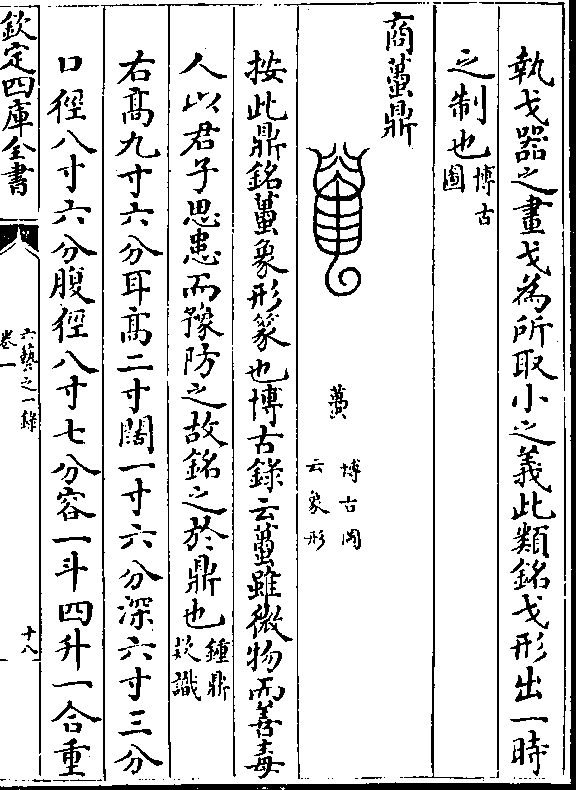 執戈器之畫戈為所取小之義此類銘戈形出一時
之制也博古
圖
商蠆鼎
蠆
博古圖
云象形
按此鼎銘蠆象形篆也博古錄云蠆雖微物而善毒
人以君子思患而豫防之故銘之於鼎也鍾鼎
欵識
右高九寸六分耳高二寸闊一寸六分深六寸三分
口徑八寸六分腹徑八寸七分容一斗四升一合重
欽定四庫全書
六藝之一錄
卷一
十八